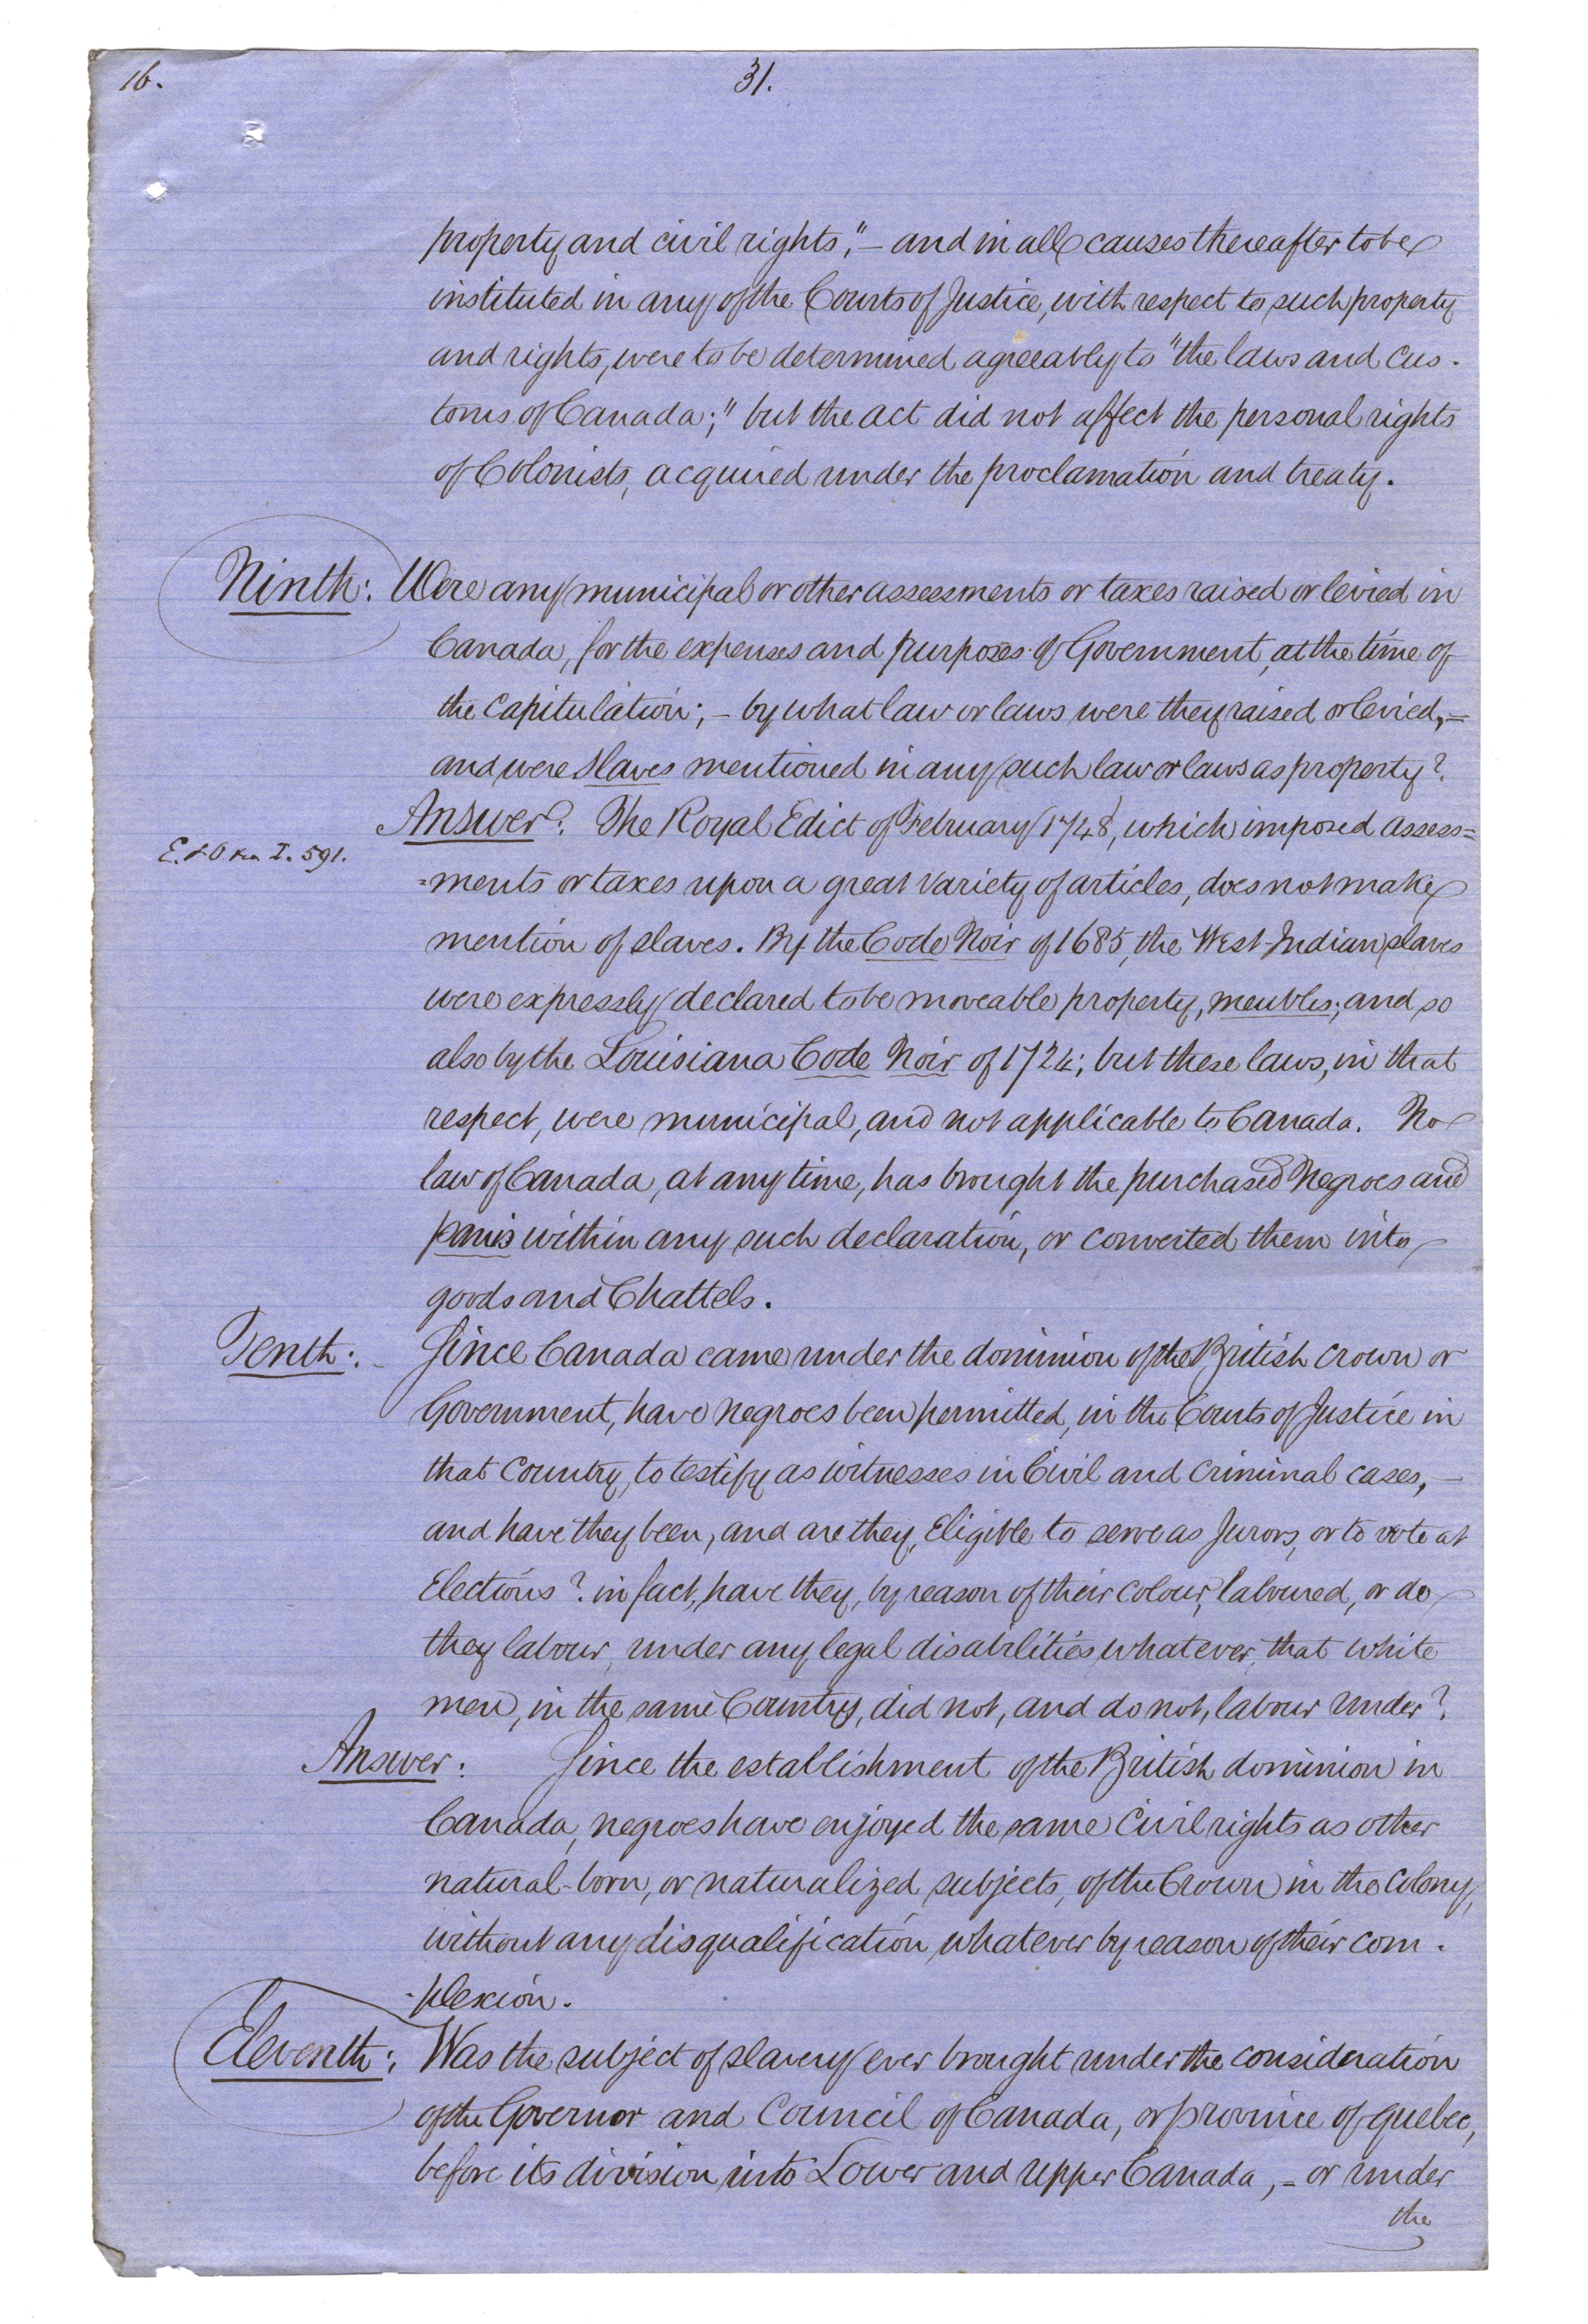 16.
31.
property and civil rights," – and in all causes thereafter to be
instituted in any of the Courts of Justice, with respect to such property
and rights, were to be determined agreeably to "the laws and cus-
toms of Canada;" but the act did not affect the personal rights
of Colonists, acquired under the proclamation and treaty.
Ninth: Were any municipal or other assessments or taxes raised or levied in
Canada, for the expenses and purposes of Government, at the time of
the capitulation; – by what law or laws were they raised or levied, =
and were slaves mentioned in any such law or laws as property?
Answer: The Royal Edict of February 1748, which imposed assess=
E. & O I. 591.
=ments or taxes upon a great variety of articles, does not make
mention of slaves. By the Code Noir of 1685, the West-Indian slaves
were expressly declared to be moveable property, meubles; and so
also by the Louisiana Code Noir of 1724; but these laws, in that
respect, were municipal, and not applicable to Canada. No
law of Canada, at any time, has brought the purchased Negroes and
panis within any such declaration, or converted them into
goods and Chattels.
Tenth: Since Canada came under the dominion of the British Crown or
Government, have negroes been permitted, in the Courts of Justice in
that Country, to testify as witnesses in Civil and Criminal cases, –
and have they been, and are they, Eligible to serve as Jurors, or to vote at
Elections? in fact, have they, by reason of their colour, laboured, or do
they labour, under any legal disabilities whatever, that white
men, in the same Country, did not, and do not, labour under?
Answer: Since the establishment of the British dominion in
Canada, negroes have enjoyed the same Civil rights as other
natural-born, or naturalized subjects, of the Crown in the Colony,
without any disqualification whatever by reason of their com-
-plexion.
Eleventh: Was the subject of slavery ever brought under the consideration
of the Governor and Council of Canada, or province of Quebec,
before its division into Lower and Upper Canada, = or under
the